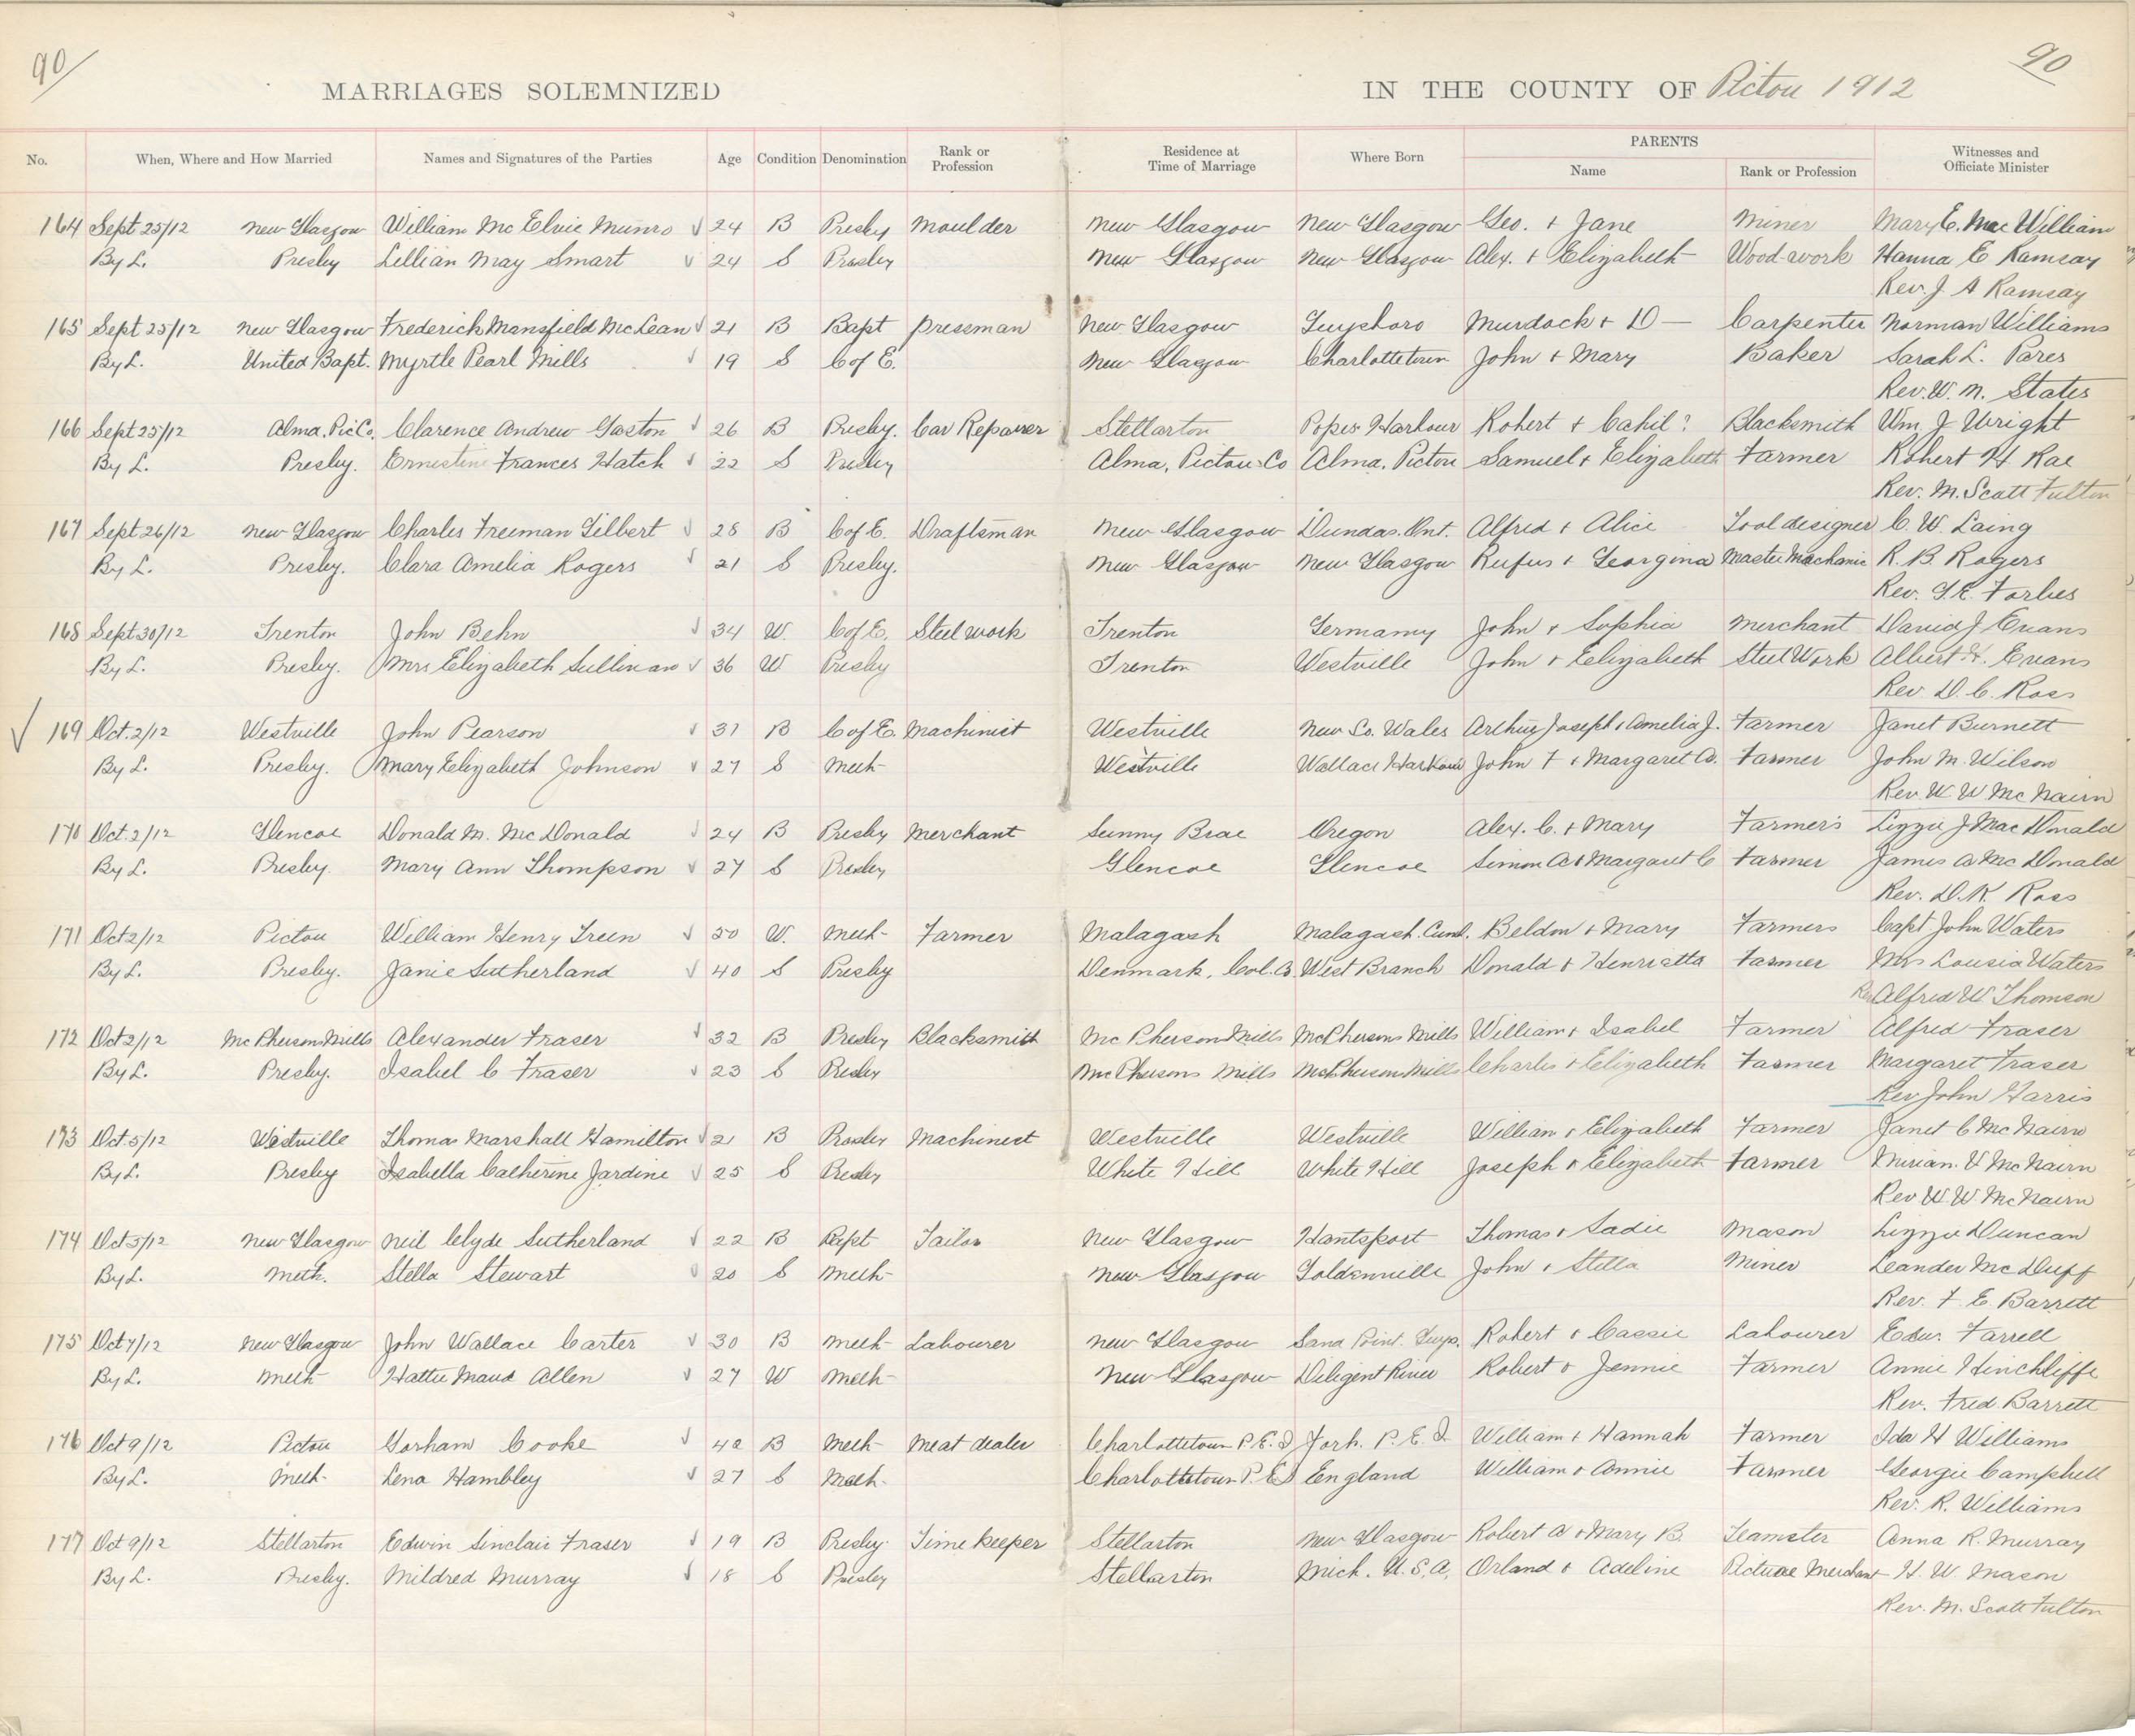 90 90
MARRIAGES SOLEMNIZED IN THE COUNTY OF Pictou 1912
No. When, Where and How Married Names and Signatures of the Parties Age Condition Denomination Rank or Profession Residence at Time of Marriage Where Born PARENTS Name Rank or Profession Witnesses and Officiate Minister
164 Sept 25/12 New Glasgow William Mc Elvie Munro √ 24 B Presby Moulder New Glasgow New Glasgow Geo. + Jane Miner Mary E. Mac William
By L. Presby Lillian May Smart √ 24 S Presby New Glasgow New Glasgow Alex. + Elizabeth Wood-work Hanna E Ramsay
Rev. J. A Ramsay
165 Sept 25/12 New Glasgow Frederick Mansfield McLean √ 21 B Bapt pressman New Glasgow Guysboro Murdock + D — Carpenter Norman Williams
By L. United Bapt. Myrtle Pearl Mills √ 19 S C of E. New Glasgow Charlottetown John + Mary Baker Sarah L. Pares
Rev. W. N. States
166 Sept 25/12 Alma. Pic Co. Clarence Andrew Gaston √ 26 B Presby. Car Repairer Stellarton Popes Harbour Robert + Cahil? Blacksmith Wm. J. Wright
By L. Presby. Ernestine Frances Hatch √ 22 S Presby Alma, Pictou Co Alma. Pictou Samuel + Elizabeth Farmer Robert H Rae
Rev. M. Scott Fulton
167 Sept 26/12 New Glasgow Charles Freeman Gilbert √ 28 B C of E. Draftsman New Glasgow Dundas. Ont. Alfred + Alice Tool designer C. W. Laing
By L. Presby. Clara Amelia Rogers √ 21 S Presby. New Glasgow New Glasgow Rufus + Georgina Master Machanic R. B. Rogers
Rev. G. E. Forbes
168 Sept 30/12 Trenton John Behn √ 34 W. C of E. Steel work Trenton Germany John + Sophia Merchant David J Evans
By L. Presby. Mrs Elizabeth Sullivan √ 36 W Presby Trenton Westville John + Elizabeth Steel Work Albert H. Evans
Rev. D. C. Ross
√ 169 Oct. 2/12 Westville John Pearson √ 31 B C of E. Machinist Westville New So. Wales Arthur Joseph + Amelia J. Farmer Janet Burnett
By L. Presby. Mary Elizabeth Johnson √ 27 S Meth Westville Wallace Harbour John F + Margaret A. Farmer John M. Wilson
Rev. W. W McNairn
170 Oct. 2/12 Glencoe Donald M. McDonald √ 24 B Presby Merchant Sunny Brae Oregon Alex. C. + Mary Farmers Lizzie J MacDonald
By L. Presby. Mary Ann Thompson √ 27 S Presby Glencoe Glencoe Simon A + Margaret C Farmer James A McDonald
Rev. D. K. Ross
171 Oct 2/12 Pictou William Henry Treen √ 50 W. Meth Farmer Malagash Malagash. Cumb. Beldon + Mary Farmers Capt John Waters
By L. Presby. Janie Sutherland √ 40 S Presby Denmark, Col. Co West Branch Donald + Henrietta Farmer Mrs Lousia Waters
Rev Alfred W Thomson
172 Oct 2/12 McPhersons Mills Alexander Fraser √ 32 B Presby Blacksmith McPhersons Mills McPhersons Mills William + Isabel Farmer Alfred Fraser
By L. Presby. Isabel C Fraser √ 23 S Presby McPhersons Mills McPhersons Mills Charles + Elizabeth Farmer Margaret Fraser
Rev John Harris
173 Oct 5/12 Westville Thomas Marshall Hamilton √ 21 B Presby Machinest Westville Westville William + Elizabeth Farmer Janet C McNairn
By L. Presby Isabella Catherine Jardine √ 25 S Presby White Hill White Hill Joseph + Elizabeth Farmer Mirian. V McNairn
Rev W. W. McNairn
174 Oct 5/12 New Glasgow Neil Clyde Sutherland √ 22 B Bapt Tailor New Glasgow Hantsport Thomas + Sadie Mason Lizzie Duncan
By L. Meth. Stella Stewart √ 20 S Meth New Glasgow Goldenville John + Stella Miner Leander McDuff
Rev. F. E. Barrett
175 Oct 7/12 New Glasgow John Wallace Carter √ 30 B Meth Labourer New Glasgow Sand Point. Guys. Robert + Cassie Labourer Edw. Farrell
By L. Meth Hattie Maud Allen √ 27 W Meth New Glasgow Diligent River Robert + Jennie Farmer Annie Hinchliffe
Rev. Fred Barrett
176 Oct 9/12 Pictou Gorham Cooke √ 42 B Meth Meat dealer Charlottetown P.E.I York. P.E.I. William + Hannah Farmer Ida H Williams
By L. Meth. Lena Hambley √ 27 S Meth. Charlottetown P.E.I England William + Annie Farmer Georgie Campbell
Rev. R. Williams
177 Oct 9/12 Stellarton Edwin Sinclair Fraser √ 19 B Presby. Time keeper Stellarton New Glasgow Robert A + Mary B. Teamster Anna R. Murray
By L. Presby. Mildred Murray √ 18 S Presby Stellarton Mich. U.S.A. Orland + Adeline Picture Merchant H. W. Mason
Rev. M. Scott Fulton